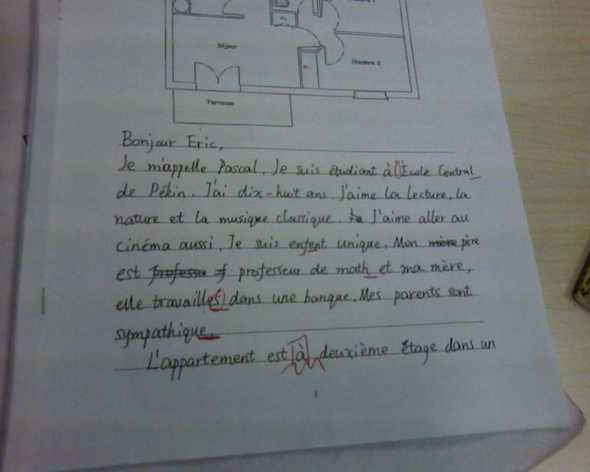 Séjour
Chambre 2
Terrasse
Bonjour Eric,
Je m'appelle Pascal. Je suis étudiant à l'École Central
de Pékin. J'ai dix-huit ans. J'aime la lecture, la
nature et la musique classique. J'aime aller au
cinéma aussi. Je suis enfent unique. Mon mère père
est professeu f professeur de math et ma mère,
elle travailles dans une banque. Mes parents sont
sympathique.
L'appartement est à deuxième étage dans un